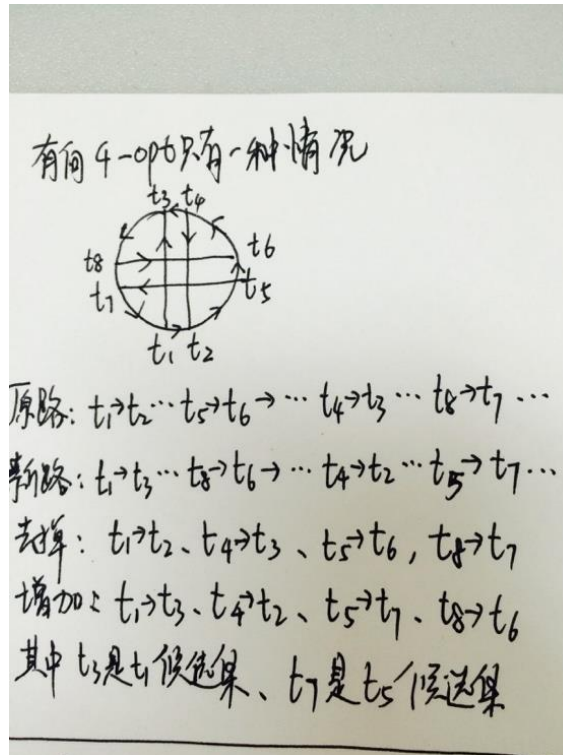 有向4-opt只有一种情况
t3 t4
t8 t6
t7 t5
t1 t2
原路: t1→t2…t5→t6→… t4→t3…t8→t7…
新路: t1→t3…t8→t6→…t4→t2…t5→t7…
去掉: t1→t2、t4→t3、t5→t6, t8→t7
增加: t1→t3、t4→t2、t5→t7、t8→t6
其中t3是t1候选集、t7是t5候选集